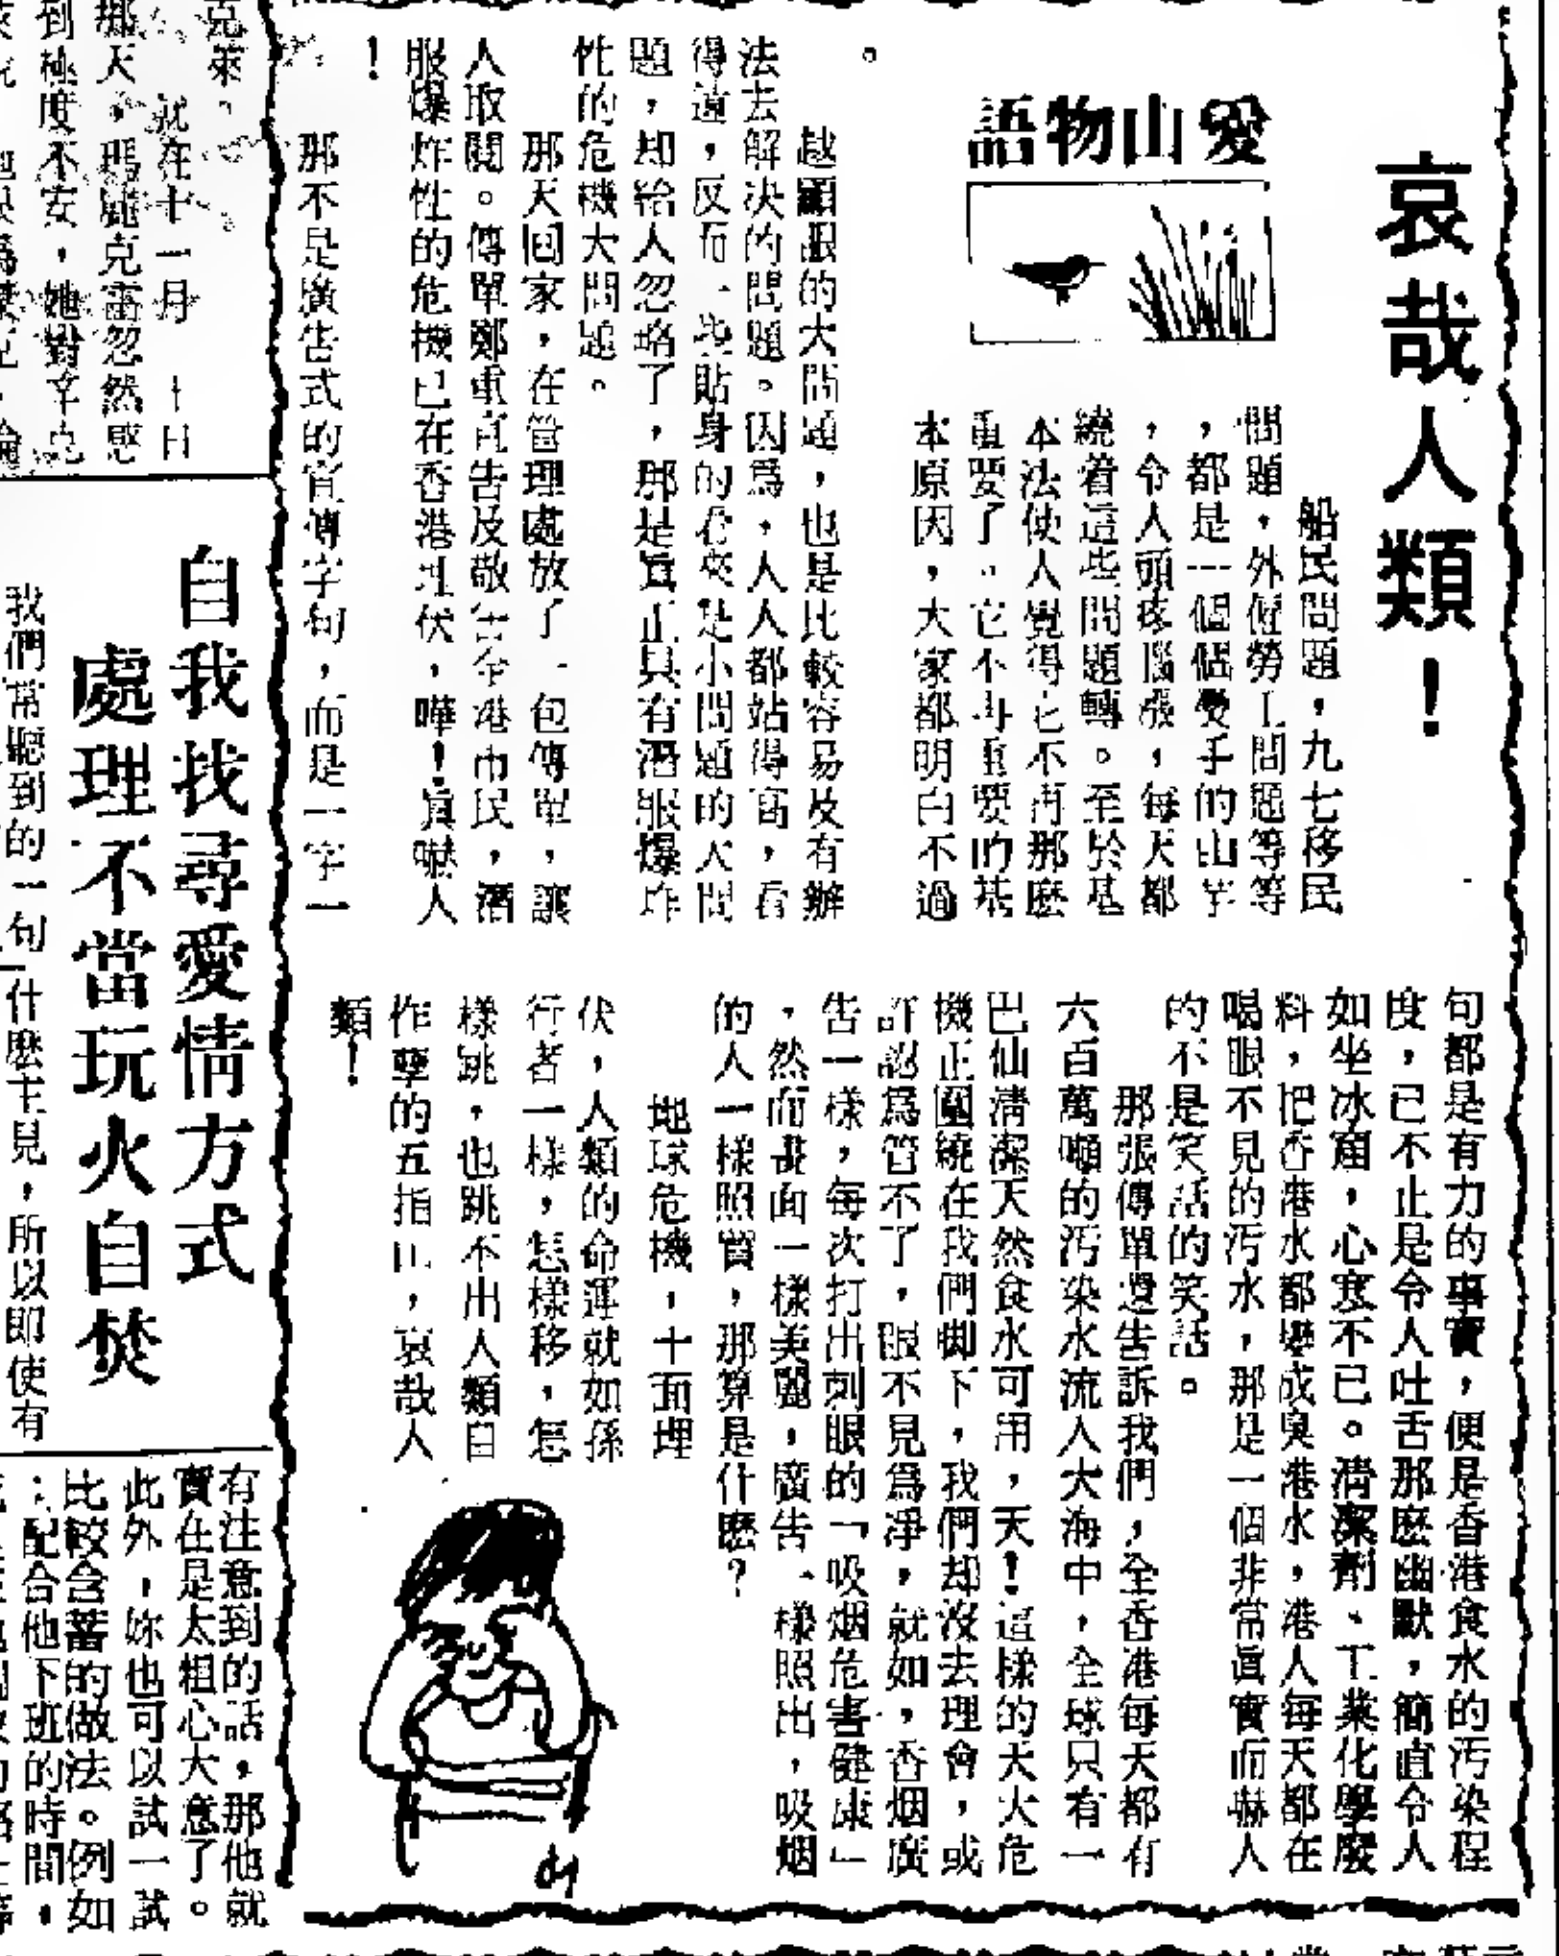 哀哉人類！
愛山物語
船民問題，九七移民
問題，外僱勞工問題等等
，都是一個個燙手的山芋
，令人頭疼腦漲，每天都
繞着這些問題轉。至於基
本法使人覺得它不再那麽
重要了。它不再重要的基
本原因，大家都明白不過
。
越顯眼的大問題，也是比較容易及有辦
法去解決的問題。因爲，人人都站得高，看
得遠，反而一些貼身的看來是小問題的大問
題，却給人忽略了，那是眞正具有潛服爆炸
性的危機大問題。
那天回家，在管理處放了一包傳單，讓
人取閱。傳單鄭重宣告及敬告全港市民，潛
服爆炸性的危機已在香港埋伏，嘩！眞嚇人
！
那不是廣告式的宣傳字句，而是一字一
句都是有力的事實，便是香港食水的污染程
度，已不止是令人吐舌那麽幽默，簡直令人
如坐冰窟，心寒不已。清潔劑、工業化學廢
料，把香港水都變成臭港水，港人每天都在
喝眼不見的污水，那是一個非常眞實而嚇人
的不是笑話的笑話。
那張傳單還告訴我們，全香港每天都有
六百萬噸的污染水流入大海中，全球只有一
巴仙清潔天然食水可用，天！這樣的大大危
機正圍繞在我們脚下，我們却沒去理會，或
許認爲管不了，眼不見爲淨，就如，香烟廣
告一樣，每次打出刺眼的「吸烟危害健康」
，然而畫面一樣美麗，廣告一樣照出，吸烟
的人一樣照買，那算是什麽？
地球危機，十面埋
伏，人類的命運就如孫
行者一樣，怎樣移，怎
樣跳，也跳不出人類自
作孽的五指山，哀哉人
類！
克萊，
就在十一月 十日
那天，瑪麗克雷忽然感
到極度不安，她對
自我找尋愛情方式
處理不當玩火自焚
我們常聽到的一句「什麽主見，所以即使有
有注意到的話，那他就
實在是太粗心大意了。
此外，妳也可以試一試
比較含蓄的做法。例如
：配合他下班的時間，